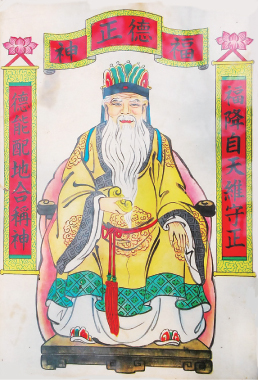 福德正神
福降自天維守正
德能配地合稱神